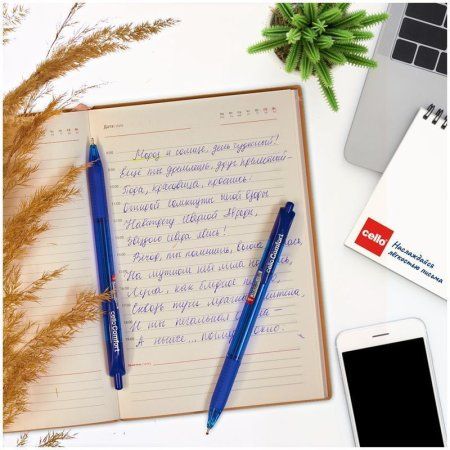 Дата
Мороз и солнце; день чудесный!
Еще ты дремлешь, друг прелестный –
Пора, красавица, проснись!
Открой сомкнуты негой взоры
Навстречу северной Авроры,
Звездою севера явись!
Вечор, ты помнишь, вьюга
На мутном небе мгла
Луна, как бледное
Сквозь тучи мрачные
И ты печальная
А нынче... в окно.
cello Comfort
cello Comfort
cello
Наслаждайся
лёгкостью письма